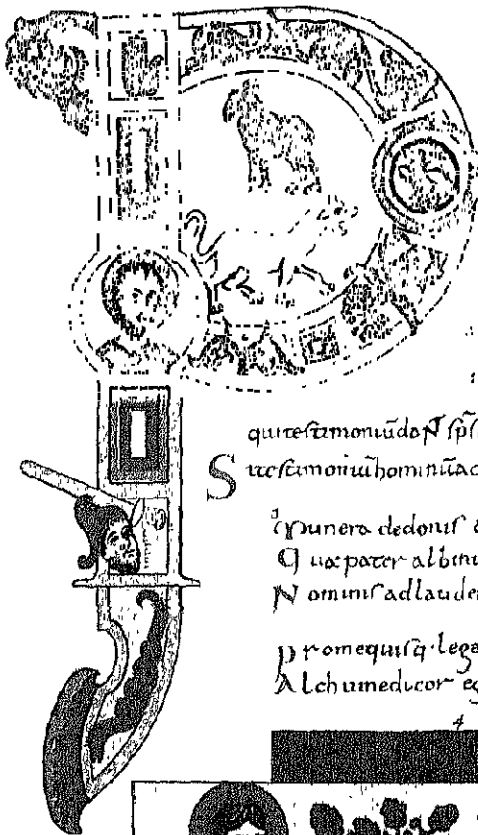 qui testimoniū daN̄ sp̄s
Si testimoniū hominū ac
Munera de donis
Quæ pater albinu
Nominis ad laude
Pro me quisq· lege
Alchumedicor eg
4